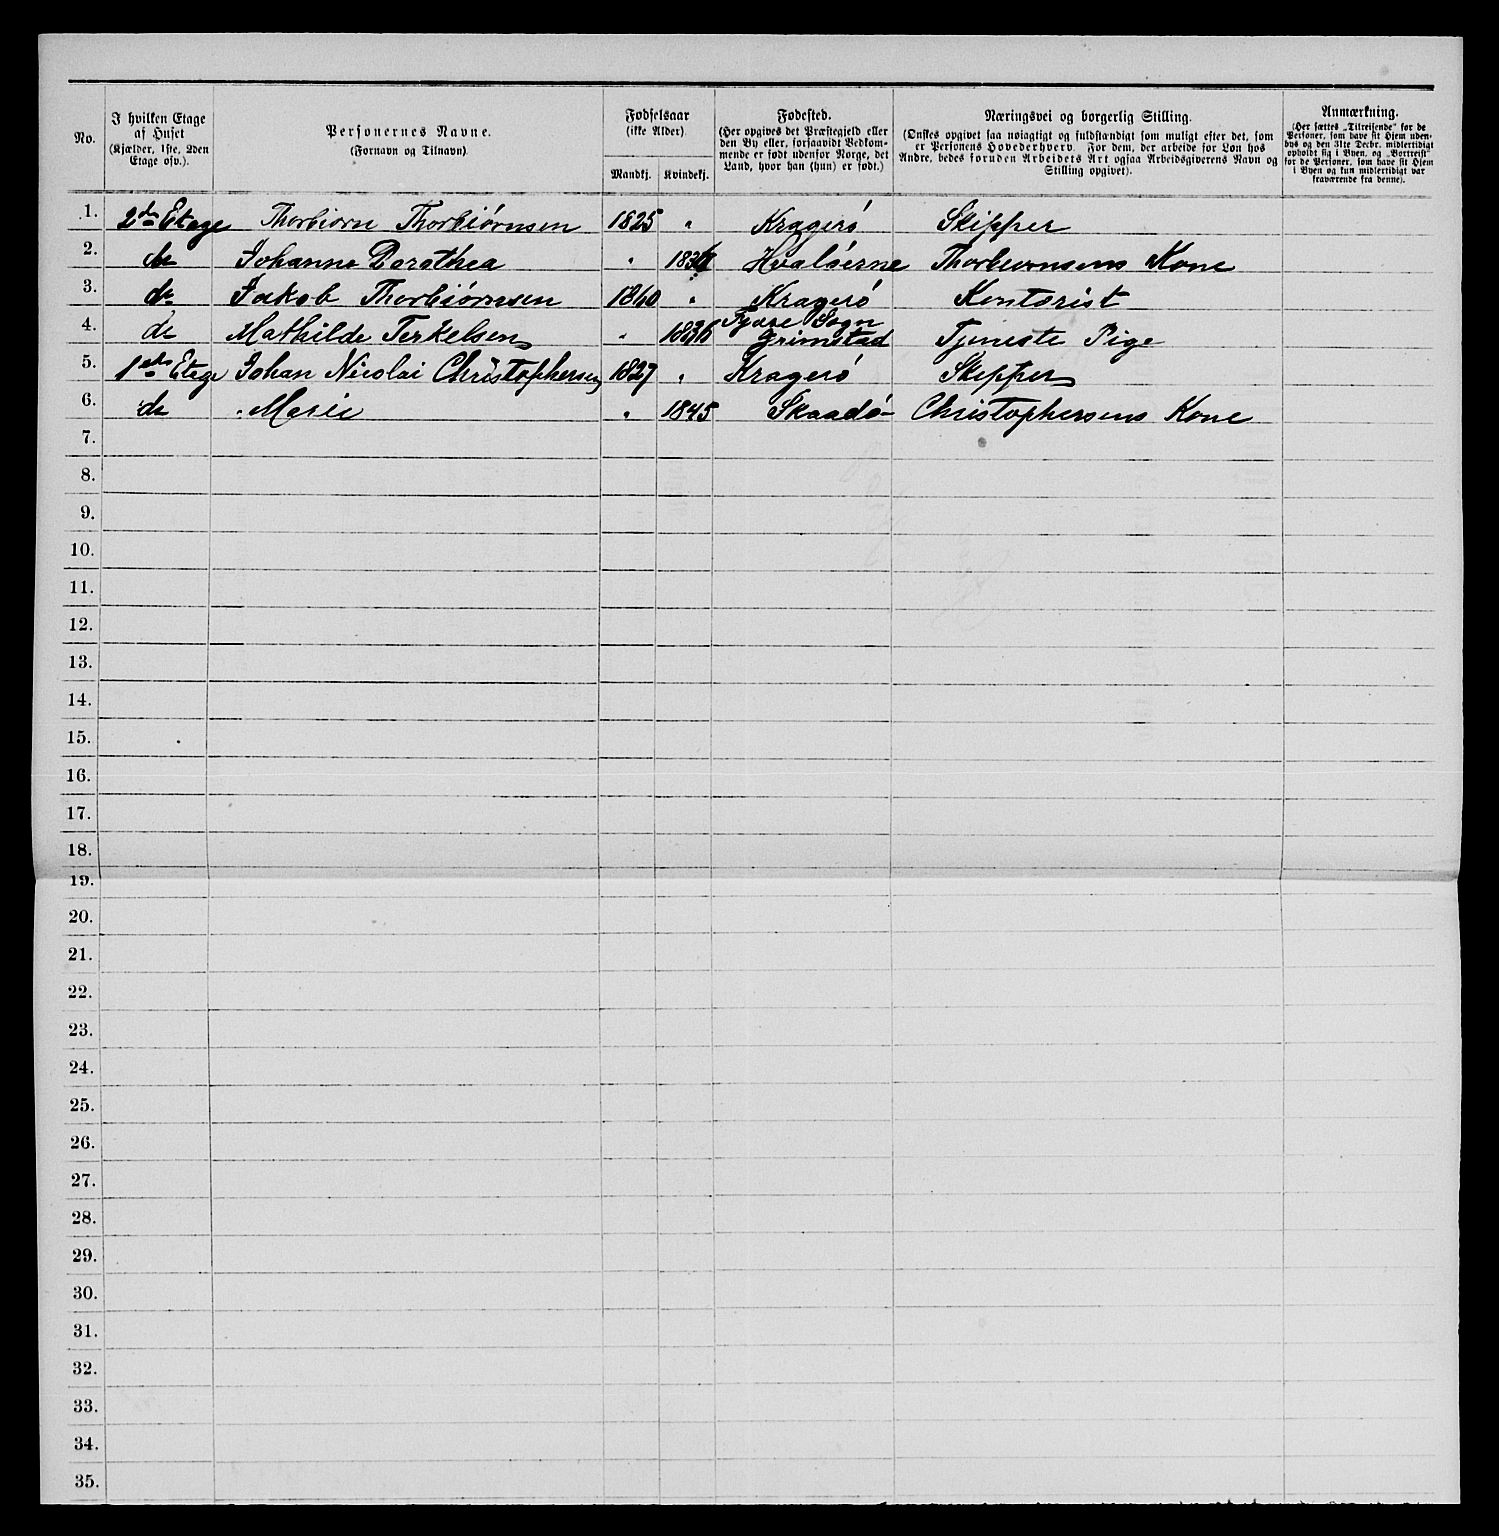 No.
I hvilken Etage
af Huset
(Kjælder, 1ste, 2den
Etage osv.).
Personernes Navne.
(Fornavn og Tilnavn).
Fødselsaar
(ikke Alder).
Mandkj. Kvindekj.
Fødested.
(Her opgives det Præstegjeld eller
den By eller, forsaavidt Vedkom-
mende er født udenfor Norge, det
Land, hvor han (hun) er født.)
Næringsvei og borgerlig Stilling.
(Ønskes opgivet saa nøiagtigt og fuldstændigt som muligt efter det, som
er Personens Hovederhverv. For dem, der arbeide for Løn hos
Andre, bedes foruden Arbeidets Art ogsaa Arbeidsgiverens Navn og
Stilling opgivet).
Anmærkning.
(Her sættes „Tilreisende“ for de
Personer, som have sit Hjem uden-
bys og den 31te Decbr. midlertidigt
opholdt sig i Byen, og „Bortreist“
for de Personer, som have sit Hjem
i Byen og kun midlertidigt var
fraværende fra denne).
1. 2de Etage Thorbiørn Thorbiørnsen 1825 " Kragerø Skipper
2. do Johanne Dorothea " Hvaløerne Thorbiørnsens Kone
3. do Jakob Thorbiørnsen 1860 " Kragerø Kontorist
4. do Mathilde Terkelsen " 1836 Fjære Sogn Grimstad Tjeneste Pige
5. 1ste Etage Johan Nicolai Christophersen 1827 " Kragerø Skipper
6. do Marie " 1845 Skaadø Christophersens Kone
7.
8.
9.
10.
11.
12.
13.
14.
15.
16.
17.
18.
19.
20.
21.
22.
23.
24.
25.
26.
27.
28.
29.
30.
31.
32.
33.
34.
35.